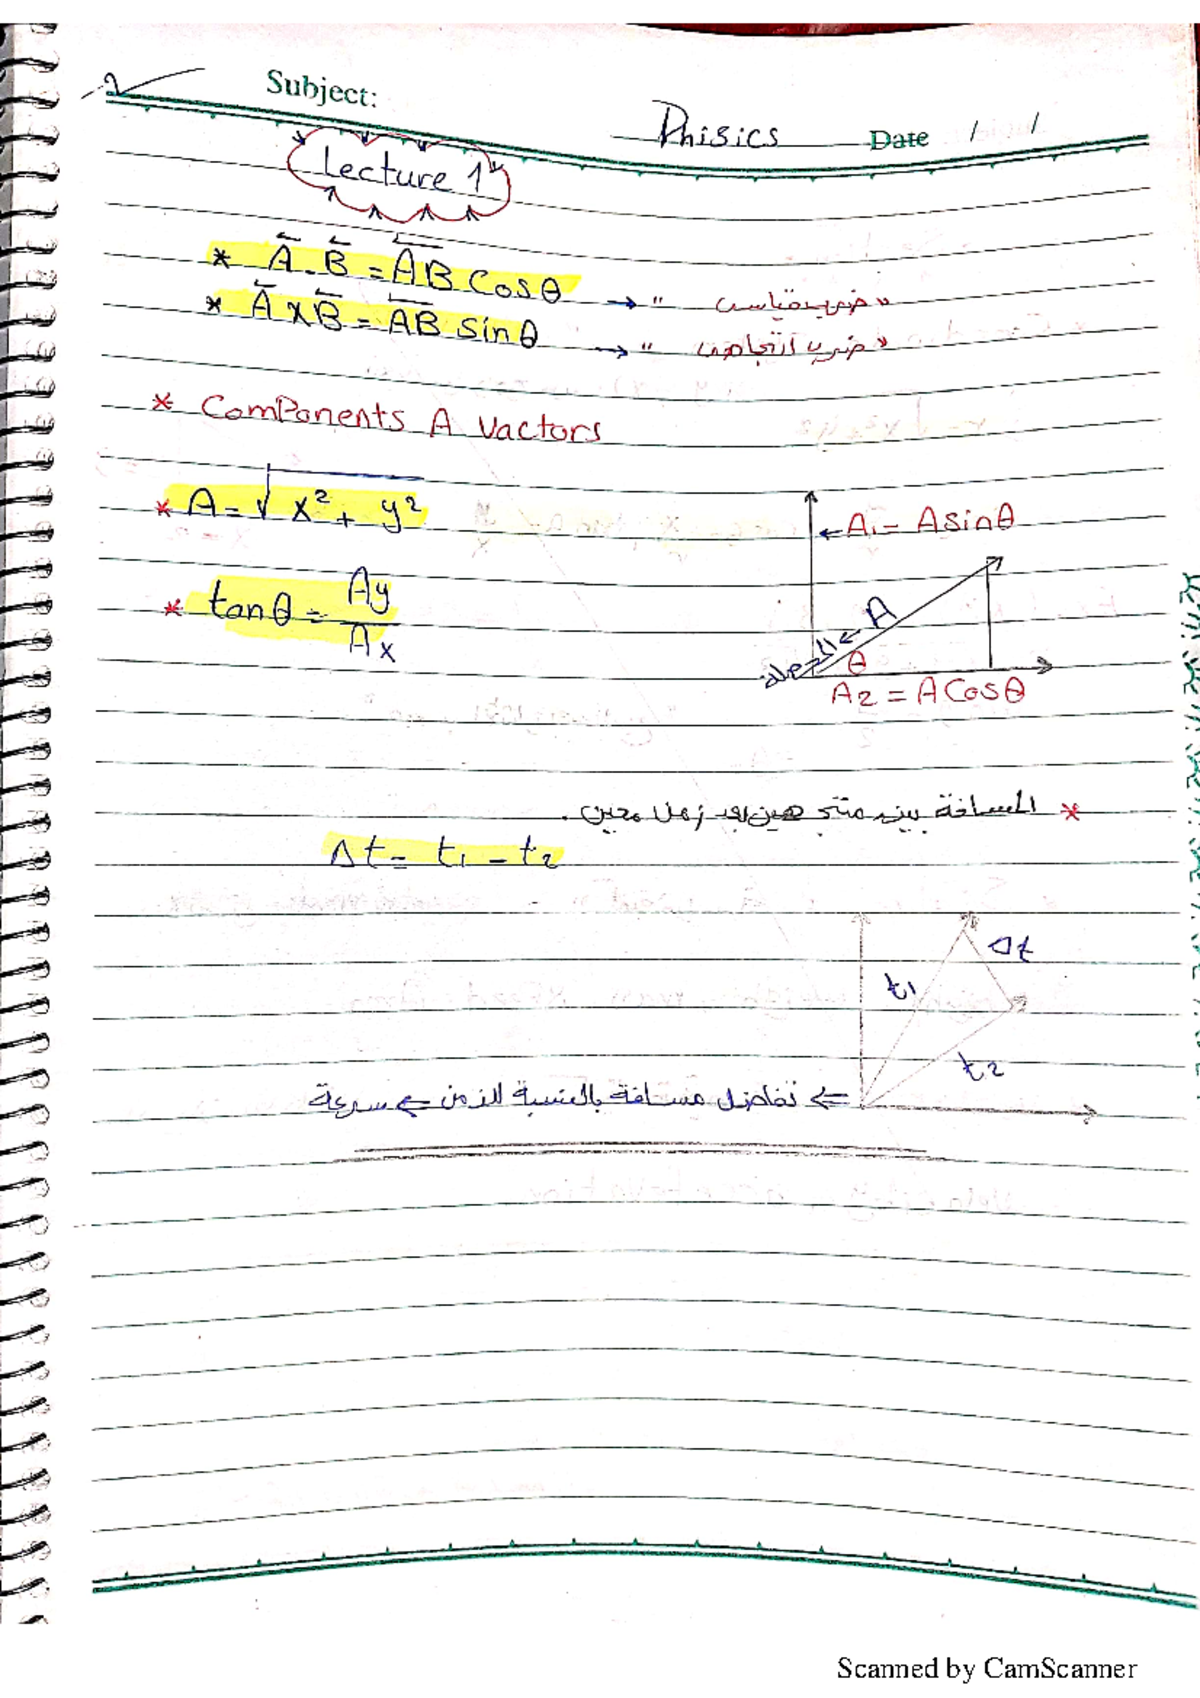 Subject:
Phisics Date / /
Lecture 1
* A . B = AB Cosθ → " ضرب قياسي "
* A x B = AB sinθ → " ضرب اتجاهي "
* ComPonents A Vactors
* A = √x² + y²
← A₁ = A sinθ
* tanθ = Ay / Ax
A
θ
A₂ = A Cosθ
* المسافة بين متجهين بعد زمن معين .
Δt = t₁ - t₂
Δt
t₁
t₂
⇐ تفاضل مسافة بالنسبة الزمن ⇐ سرعة
Scanned by CamScanner